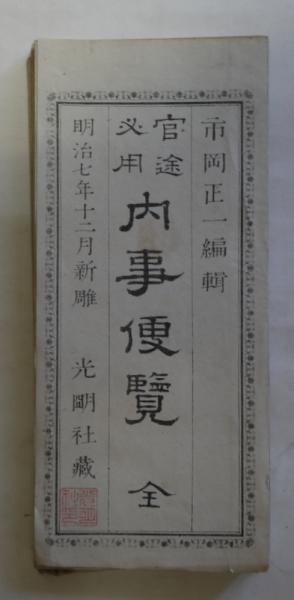 市岡正一編輯
官途
必用
内事便覽 全
明治七年十二月新雕 光明社藏